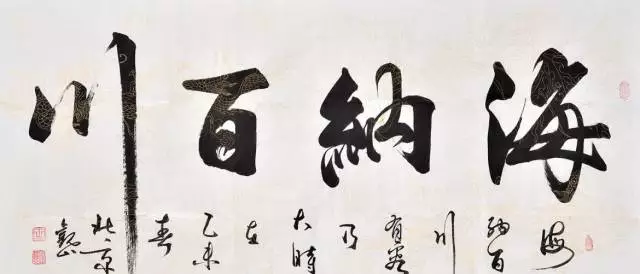 海納百川
海納百川有容乃大時在乙未春北京